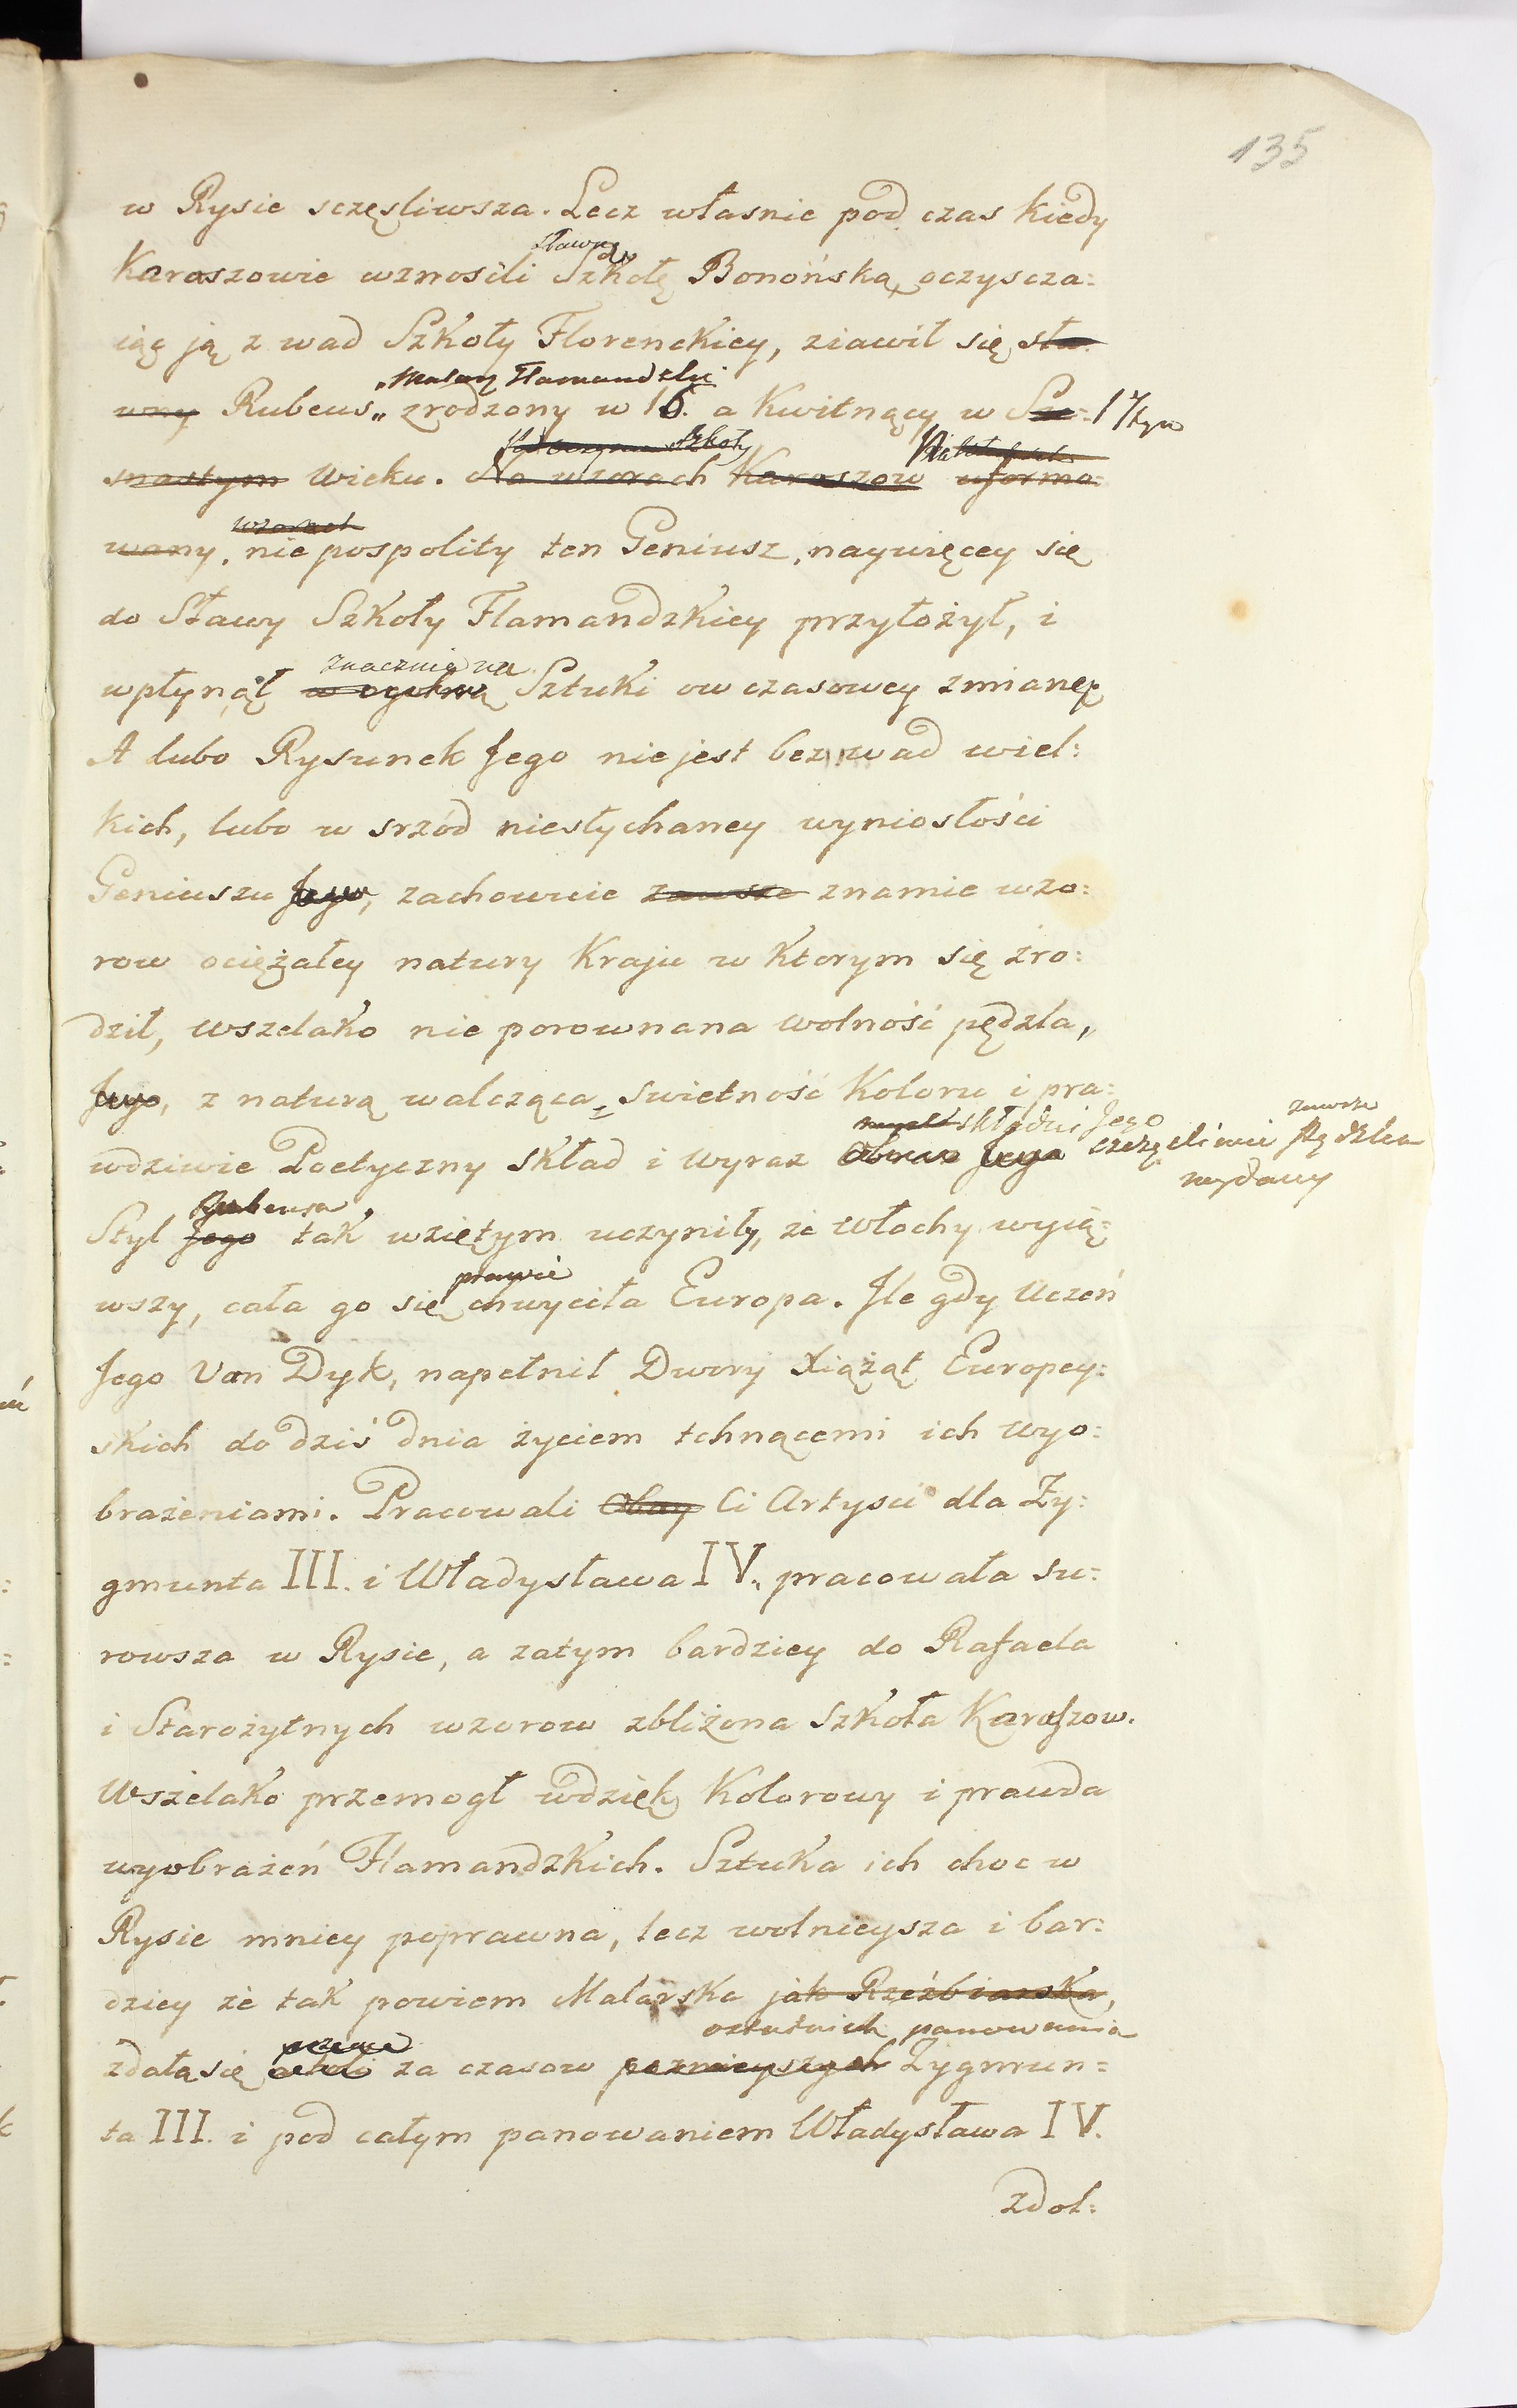 135
w Rysie sczęsliwsza. Lecz własnie pod czas kiedy
sławną
Karaszowie wznosili Szkołę Bonońską, oczyscza=
iąc ją z wad Szkoły Florenckiey, ziawił się sła
Malarz Flamandzki
wny Rubens„ zrodzony w 16. a kwitnący w Sie= 17tym
Szkoły
snastym Wieku. Na wzorach Karaszow uformo=
wzorach
wany, nie pospolity ten Geniusz, naywięcey się
do Sławy Szkoły Flamandzkiey przyłożył, i
znacznie na
wpłynął w ogulną Sztuki ow czasowey zmianę
A lubo Rysunek Jego nie jest bez wad wiel=
kich, lubo w srzód niesłychaney wyniosłości
Geniuszu Jego, zachowuie zawsze znamie wzo=
row ociężałey natury Kraju w ktorym się zro=
dził, wszelako nie porownana wolność pędzla,
Jego, z naturą walcząca, swietność Koloru i pra=
składni Jego zawsze
wdziwie Poetyczny skład i wyraz Obraz Jego szczęsliwie Pędzlem
wydany
Rubensa
Styl Jego tak wziętym uczyniły, że Włochy wyią=
prawie
wszy, cała go się chwyciła Europa. Ile gdy Uczeń
Jego Van Dyk, napełnił Dwory Xiążąt Europey=
skich do dziś dnia życiem tchnącemi ich wyo=
brażeniami. Pracowali Obay Ci Artysci dla Zy=
gmunta III. i Władysława IV., pracowała su=
rowsza w Rysie, a zatym bardziey do Rafaela
i Starożytnych wzorow zbliżona Szkoła Karaszow.
Wszelako przemogł wdzięk Kolorowy i prawda
wyobrażeń Flamandzkich. Sztuka ich choc w
Rysie mniey poprawna, lecz wolnieysza i bar=
dziey że tak powiem Malarska jak Rzeźbiarska,
ostatnich panowania
zdała się za czasow poznieyszych Zygmun=
ta III. i pod całym panowaniem Władysława IV.
zdol=